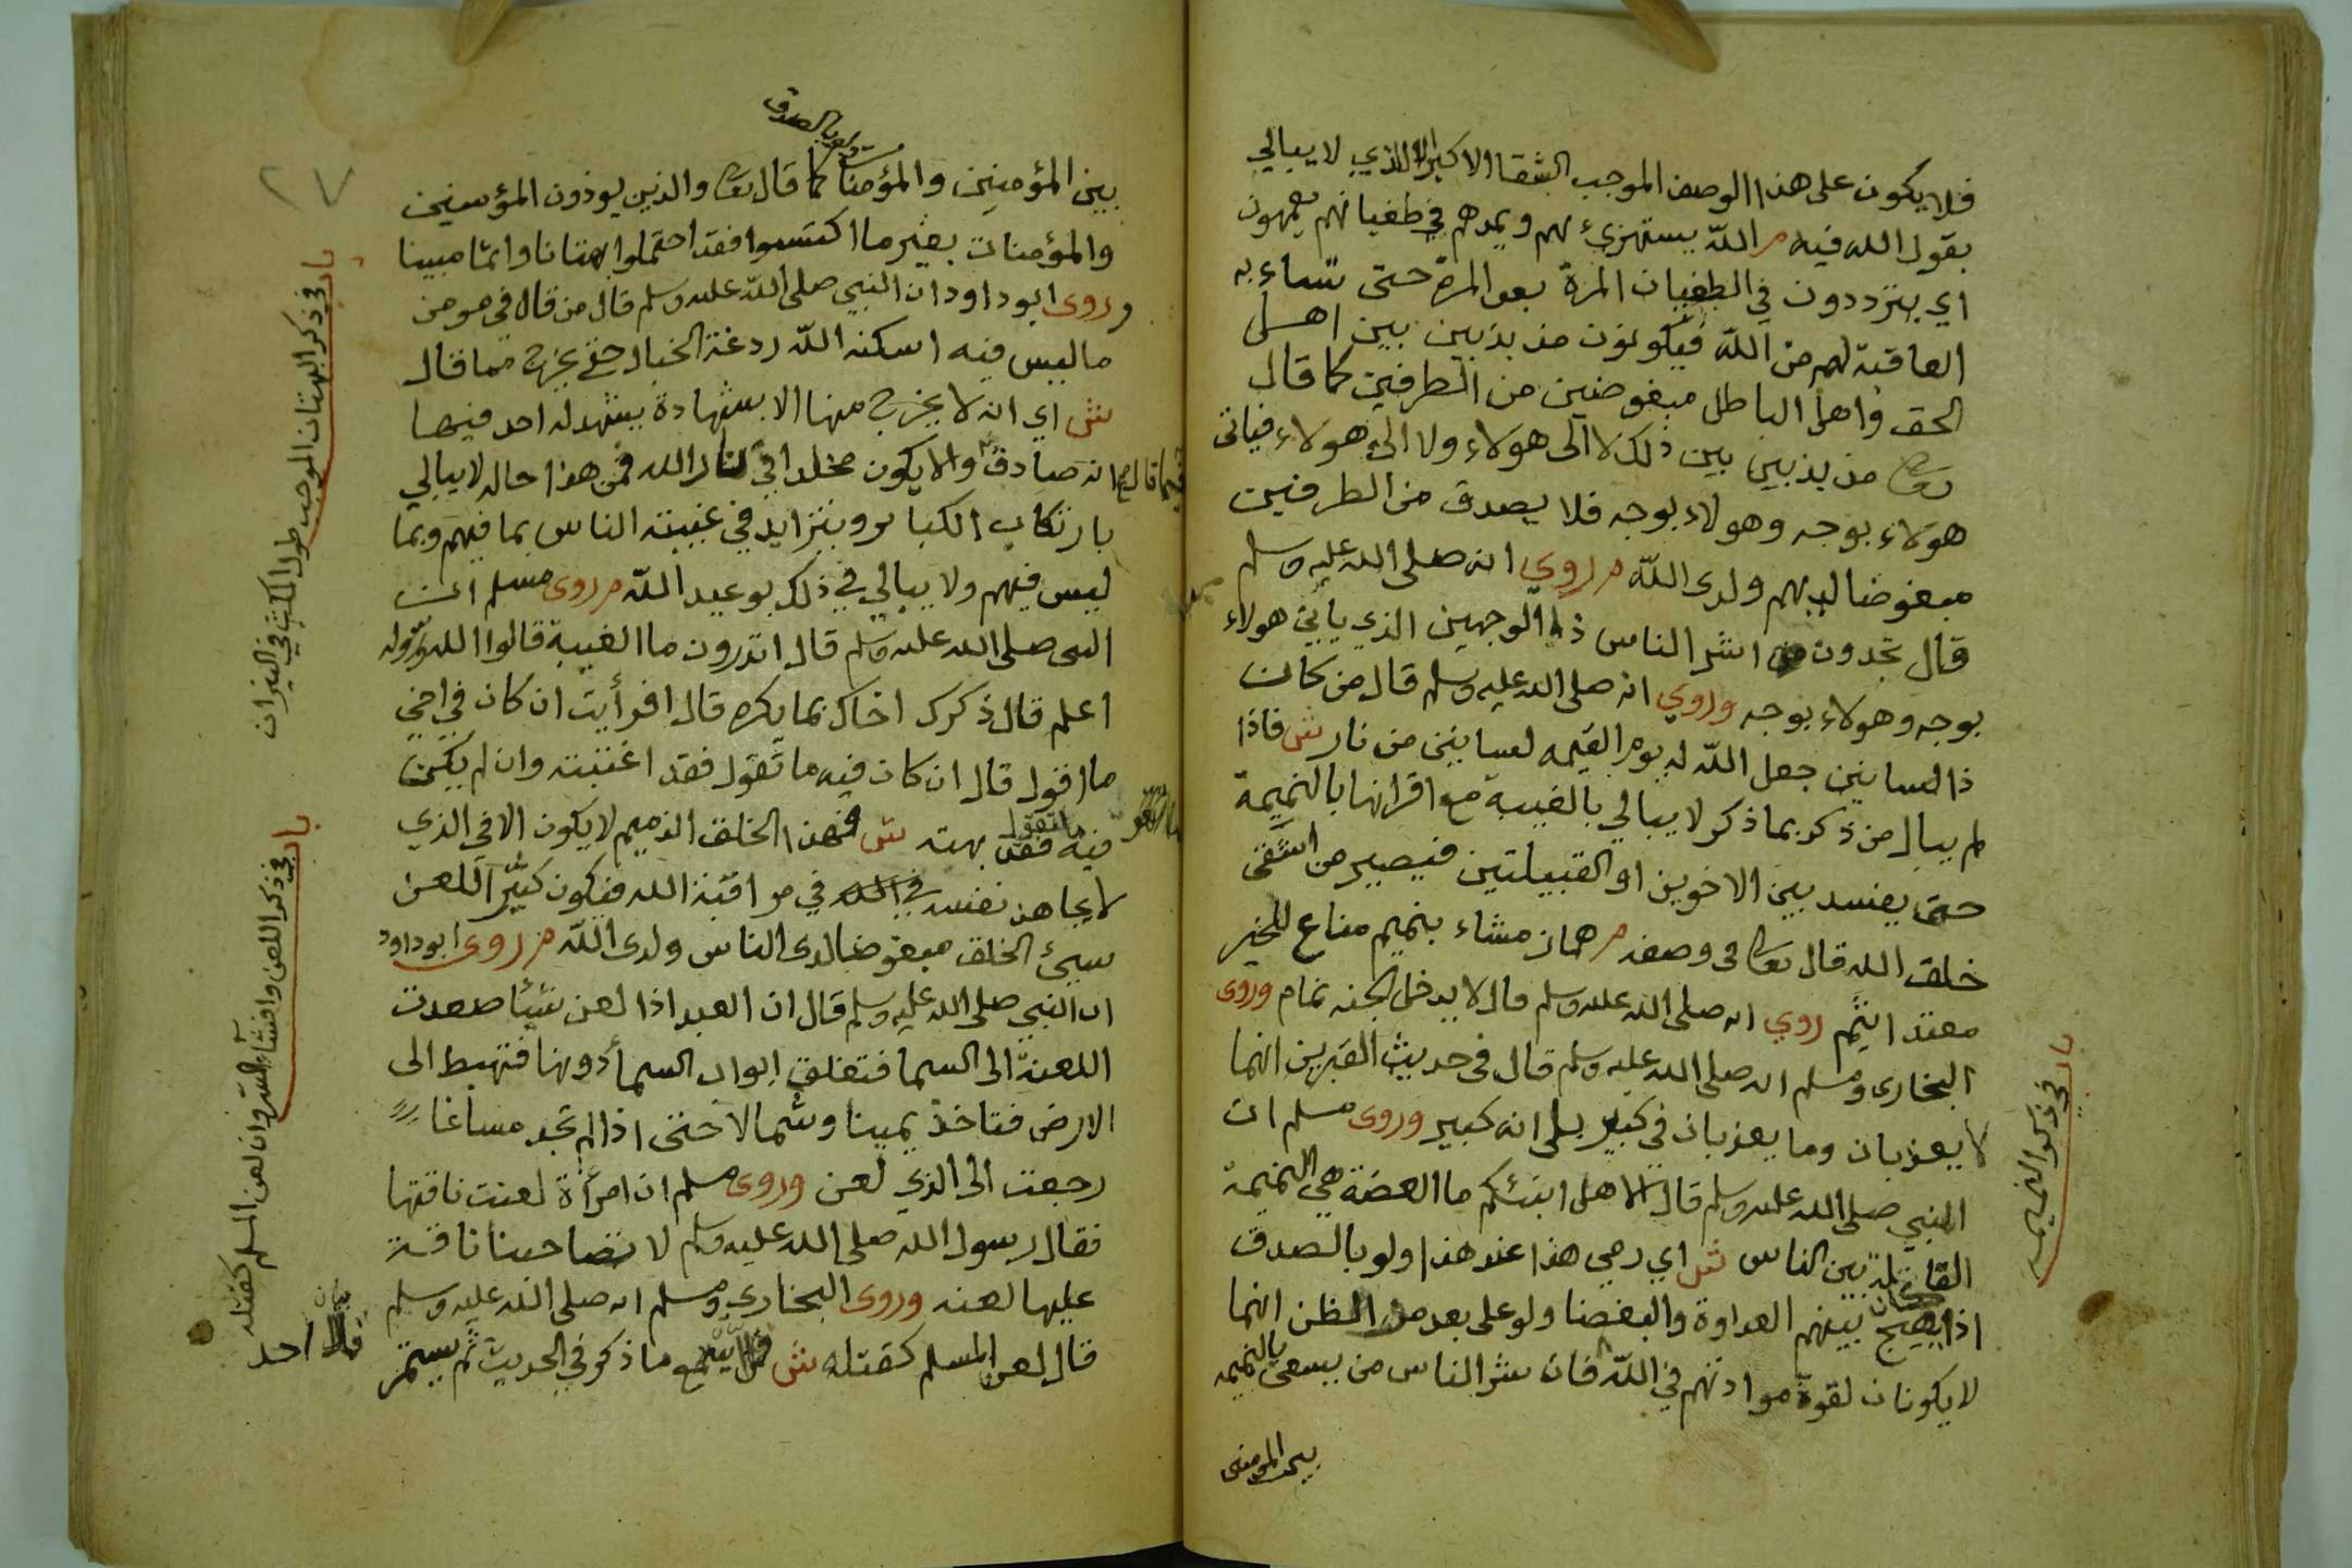 فلا يكون على هذا الوصف الموجب الشقا الاكبر الا الذي لا يبالي
بقول الله فيه م الله يستهزئ بهم ويمدهم في طغيانهم يعمهون
اي يترددون في الطغيان المرة بعد المرة حتى تساء به
العاقبة لهم من الله فيكونون مذبذبين بين اهل
الحق واهل الباطل مبغوضين من الطرفين كما قال
تعالى مذبذبين بين ذلك لا الى هولاء ولا الى هولاء فياتى
هولاء بوجه وهولاء بوجه فلا يصدق من الطرفين
مبغوضا لديهم ولدى الله م روي انه صلى الله عليه وسلم
قال تجدون اشر الناس ذا الوجهين الذي ياتي هولاء
بوجه وهولاء بوجه وروي انه صلى الله عليه وسلم قال من كان
ذا لسانين جعل الله له يوم القيمه لسانين من نار ش فاذا
لم يبال من ذكر بما ذكر لا يبالي بالغيبة مع اقرانها بالنميمة
حتى يفسد بين الاخوين او القبيلتين فيصير من اشقى
خلق الله قال تعالى في وصفه م هماز مشاء بنميم مناع للخير
معتد اثيم روي انه صلى الله عليه وسلم قال لا يدخل الجنه نمام وروى
البخارى ومسلم انه صلى الله عليه وسلم قال في حديث القبرين انهما
لا يعذبان وما يعذبان في كبير بلى انه كبير وروى مسلم ان
النبي صلى الله عليه وسلم قال الا هل انبئكم ما العضة هي النميمة
القاتلة بين الناس ش اي رمي هذا عند هذا ولو بالصدق
اذا يهيج بينهم العداوة والبغضا ولو على بعد من الظن انهما
لا يكونان لقوة موادتهم في الله فان شر الناس من يسعى بالنميمه
بين المومنين
باب في ذكر النميمه
بين المؤمنين والمؤمنات كما قال تعالى والذين يوذون المؤمنين
ولو بالصدق
والمؤمنات بغير ما اكتسبوا فقد احتملوا بهتانا واثما مبينا
وروى ابو داود ان النبي صلى الله عليه وسلم قال من قال في مومن
ما ليس فيه اسكنه الله ردغة الخبال حتى يخرج مما قال
ش اي انه لا يخرج منها الا بشهادة يشهد له احد فيها
فيما قال انه صادق والا يكون مخلدا في نار الله فمن هذا حاله لا يبالي
بارتكاب الكبائر ويتزايد في غيبته الناس بما فيهم وبما
ليس فيهم ولا يبالي في ذلك بوعيد الله م روى مسلم ان
النبى صلى الله عليه وسلم قال اتدرون ما الغيبة قالوا الله ورسوله
اعلم قال ذكرك اخاك بما يكره قال افرأيت ان كان في اخي
ما اقول قال ان كان فيه ما تقول فقد اغتبته وان لم يكن
فيه ما تقول فقد بهته ش فهذا الخلق الذميم لا يكون الا في الذي
لا يجاهد نفسه في مراقبة الله فيكون كثير اللعن
سيئ الخلق مبغوضا لدى الناس ولدى الله م روى ابو داود
ان النبي صلى الله عليه وسلم قال ان العبد اذا لعن شيئا صعدت
اللعنة الى السما فتغلق ابواب السما دونها فتهبط الى
الارض فتاخذ يمينا وشمالا حتى اذا لم تجد مساغا
رجعت الى الذي لعن وروى مسلم ان امرأة لعنت ناقتها
فقال رسول الله صلى الله عليه وسلم لا تصاحبنا ناقة
عليها لعنه وروى البخاري ومسلم انه صلى الله عليه وسلم
قال لعن المسلم كقتله ش مع ما ذكر في الحديث ثم يستمر
باب في ذكر البهتان الموجب طول المكث في النيران
باب في ذكر اللعن وافشاء السر وان لعن المسلم كقتله
احد
٢٧